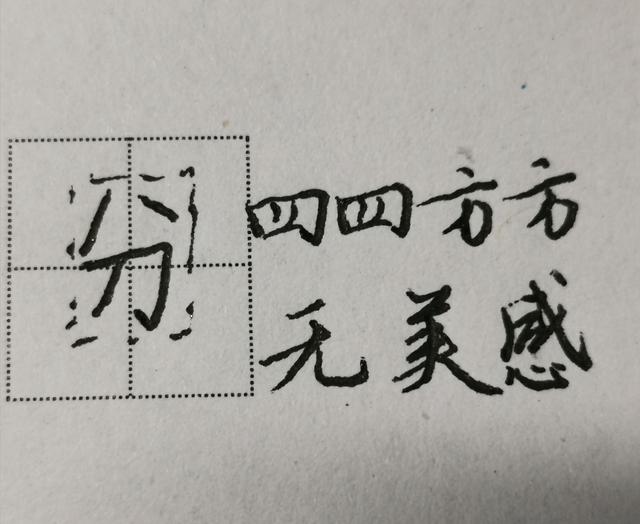 分
四四方方
无美感